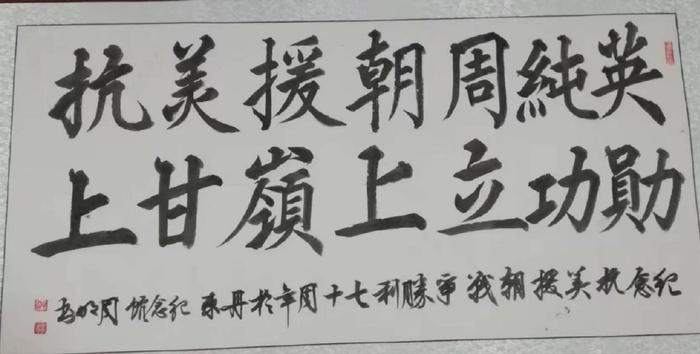 抗美援朝周純英
上甘嶺上立功勛
纪念抗美援朝战争勝利七十周年於丹東纪念馆周